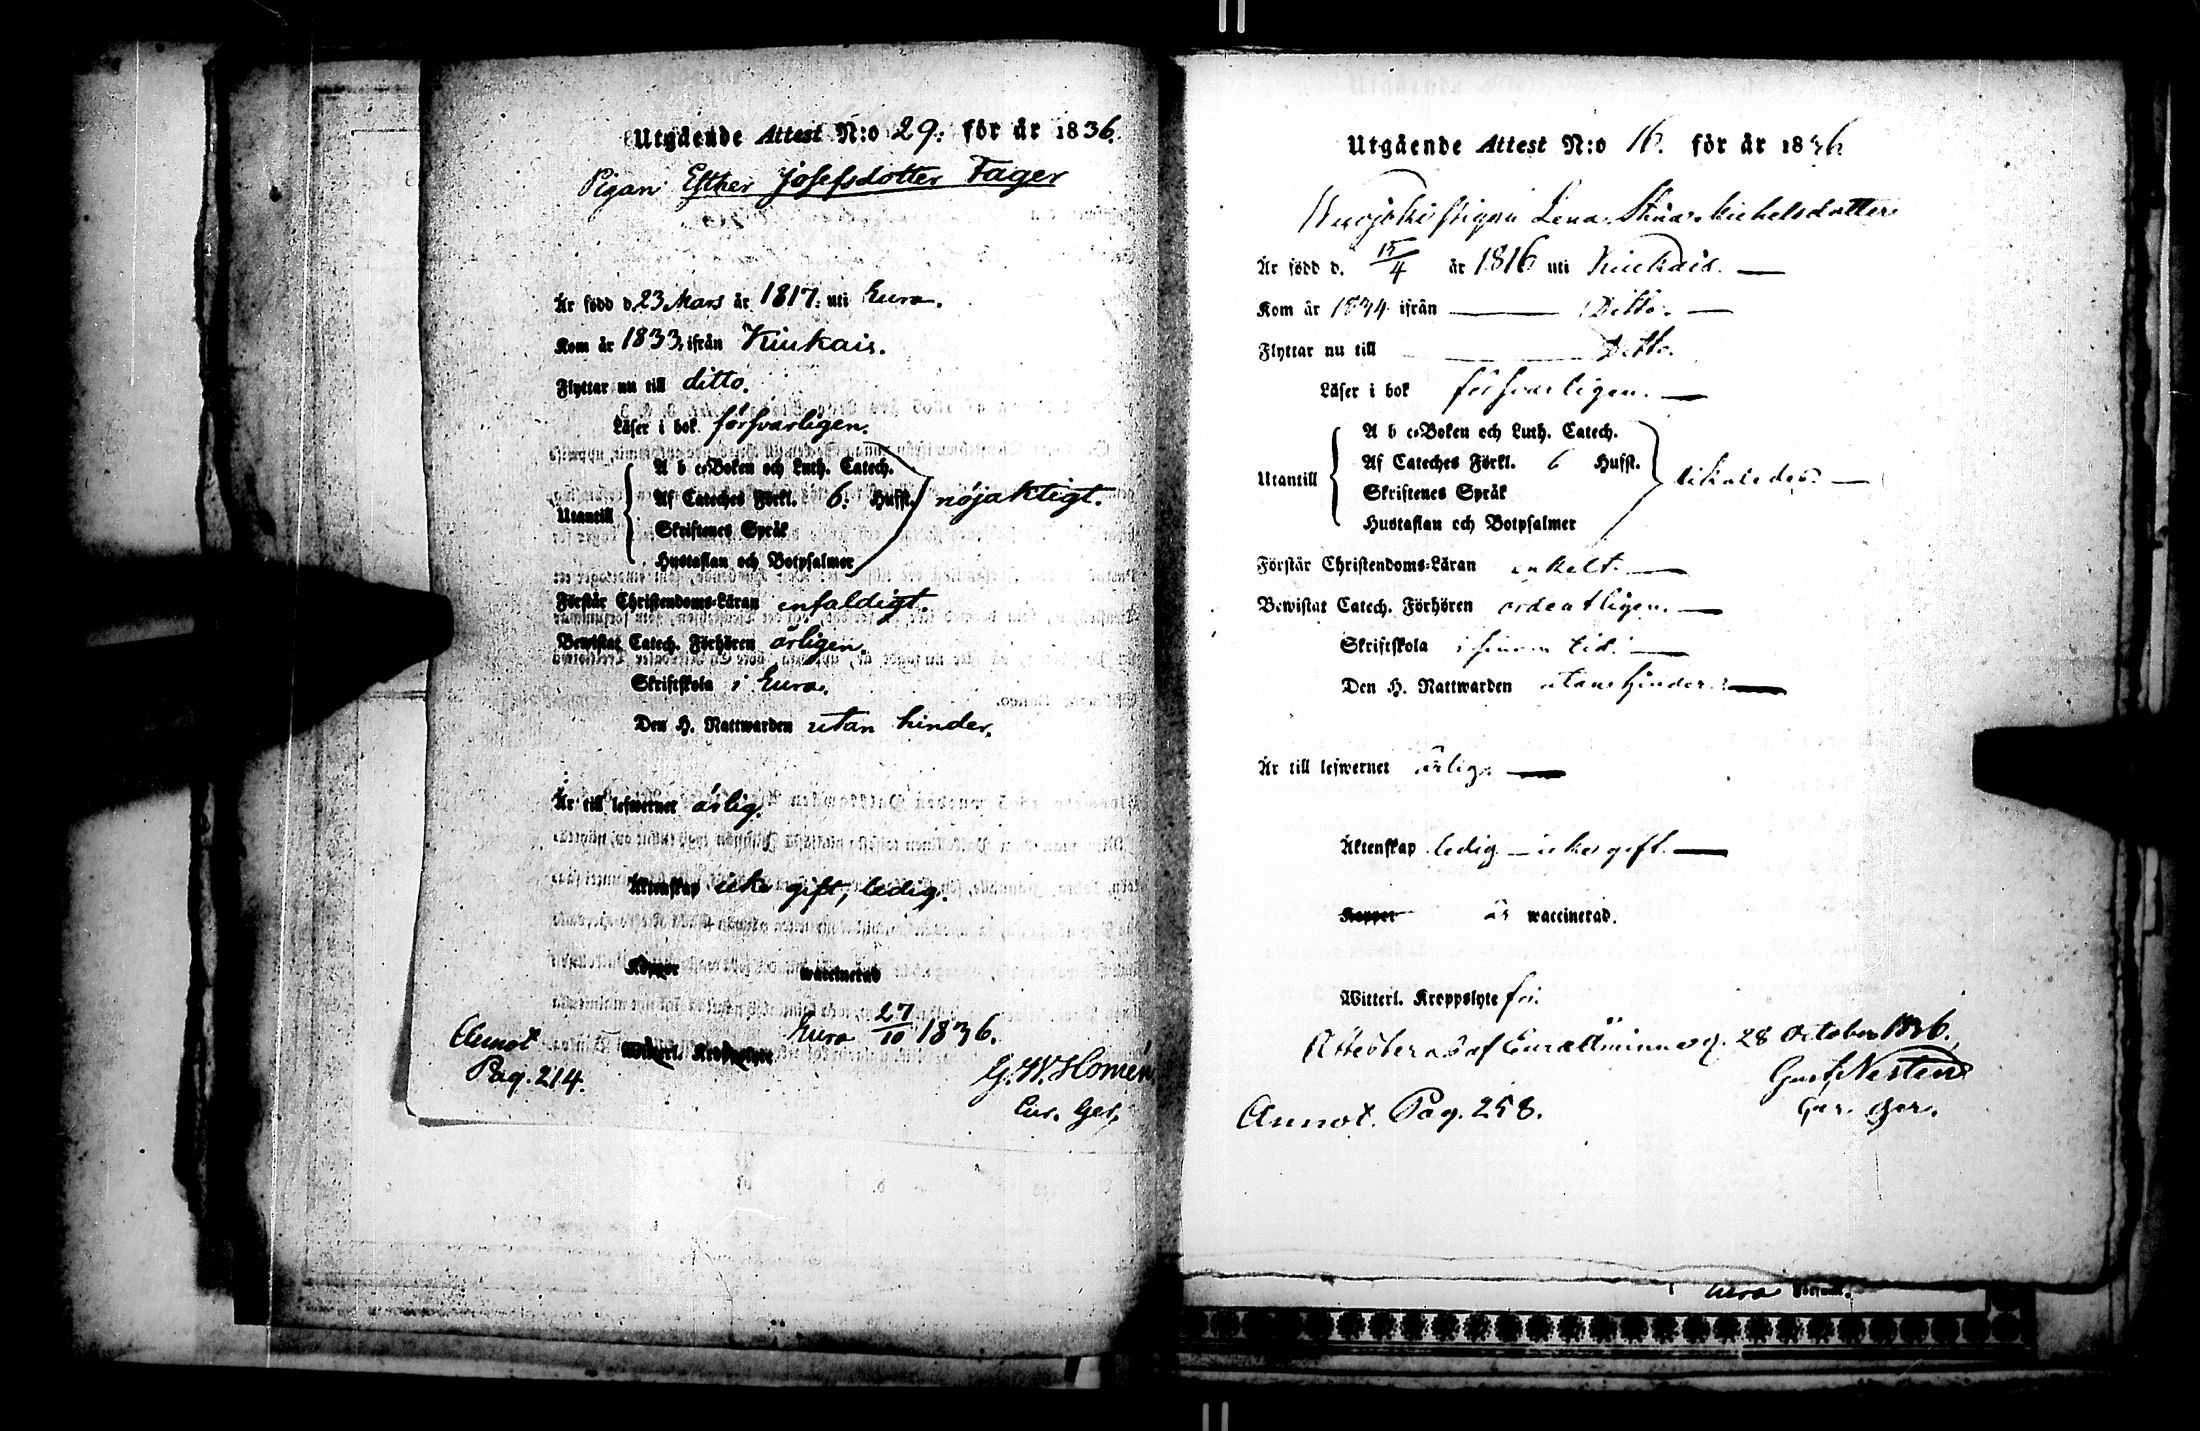 Utgående Attest N:o 29. för år 1836.
Pigan Esther Josefsdotter Fager
Är född d. 23 Mars år 1817. uti Eura.
Kom år 1833, ifrån Kiukais.
Flyttar nu till ditto.
Läser i bok försvarligen.
A b c-Boken och Luth. Catech.
Af Cateches Förkl. 6. Hufst. nöjaktigt.
Utantill
Skriftenes Språk
Hustaflan och Botpsalmer
Förstår Christendoms-Läran enfaldigt.
Bewistat Catech. Förhören årligen.
Skriftskola i Eura.
Den H. Nattwarden utan hinder.
Är till lefwernet ärlig.
Äktenskap icke gift, ledig.
Koppor waccinerad
Eura 27/10 1836.
Annot
Witterl. Kroppslyte
Pag. 214.
G. W. Homén
Cur. Ger.
Utgående Attest N:o 16. för år 1836
Pigan Lena Stina Michelsdotter
Är född d. 15/4 år 1816 uti Kiukais.
Kom år 1834 ifrån Ditto.
Flyttar nu till Ditto.
Läser i bok försvarligen.
A b c-Boken och Luth. Catech.
Af Cateches Förkl. 6 Hufst.
Utantill likaledes.
Skriftenes Språk
Hustaflan och Botpsalmer
Förstår Christendoms-Läran enkelt.
Bewistat Catech. Förhören ordentligen.
Skriftskola i sinom tid.
Den H. Nattwarden utan hinder.
Är till lefwernet ärlig.
Äktenskap ledig – icke gift.
Koppor är waccinerad.
Witterl. Kroppslyte fri.
Attesteras af Eura 28 October 1836.
Cur. Ger.
Annot. Pag. 258.
Eura